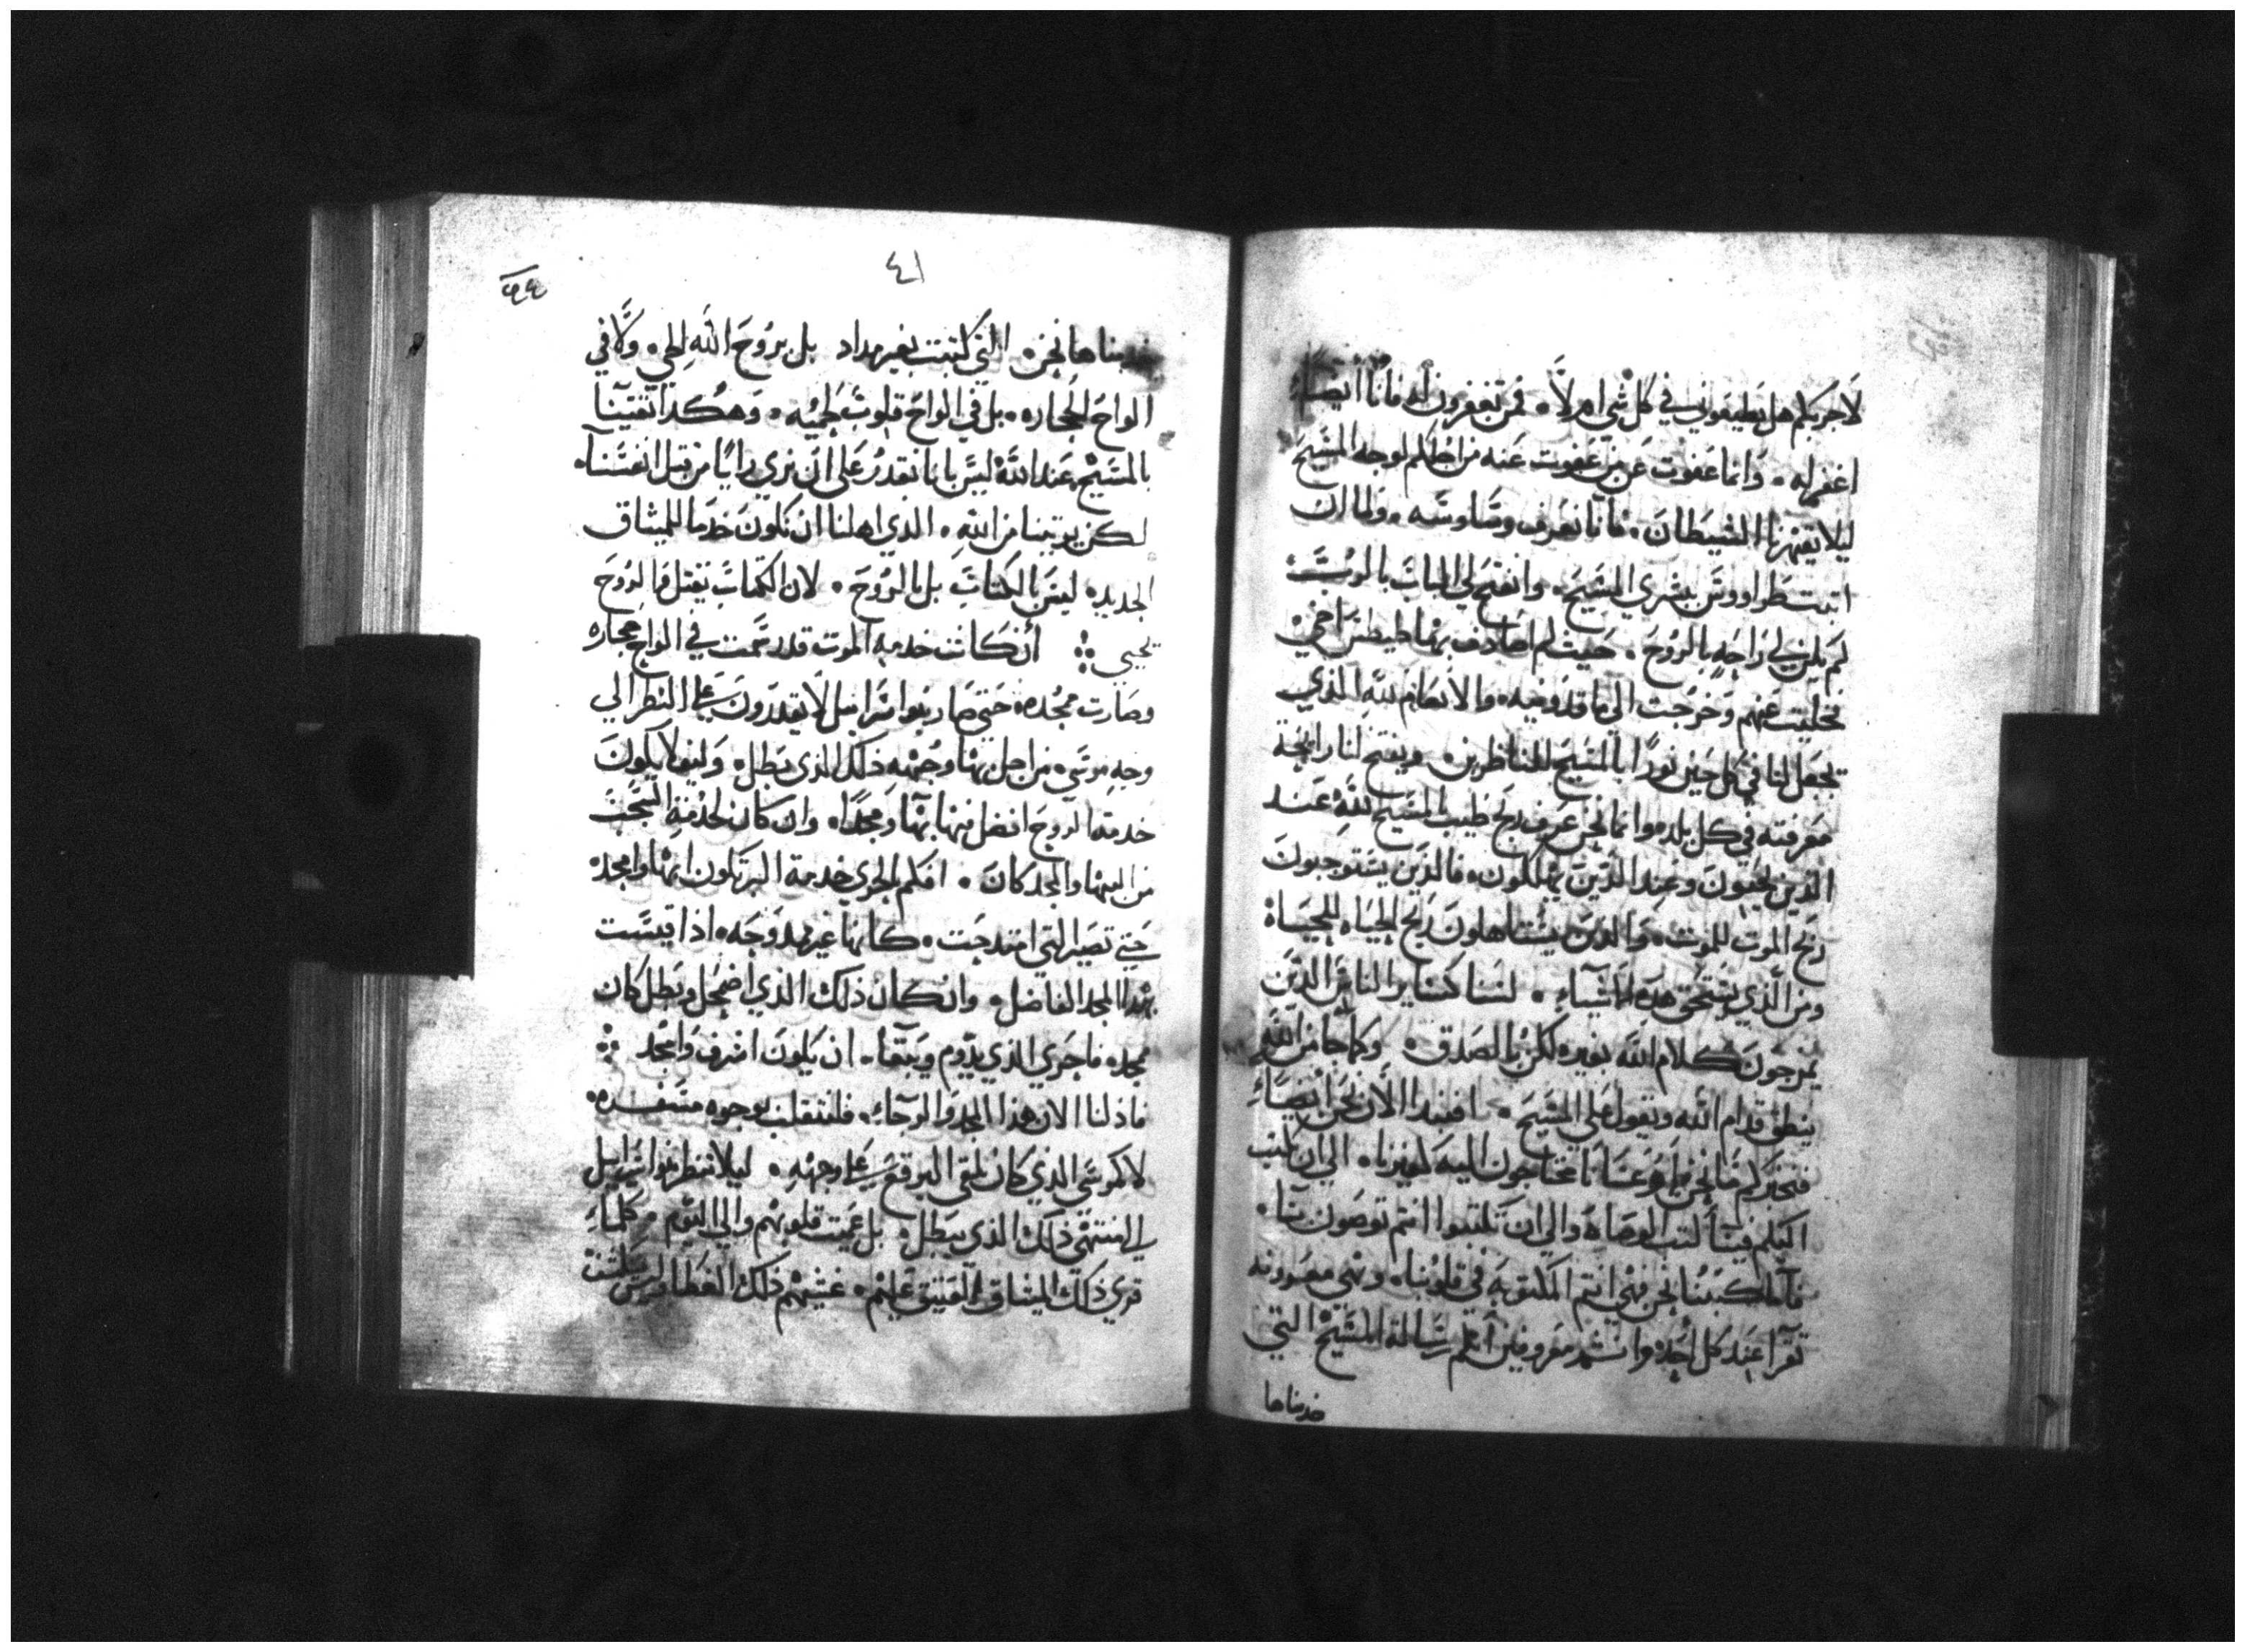 لاجربكم هل تطيعوني في كل شي ام لا. فمن تغفرون له فانا ايضاً
اغفر له. وانما عفوت عن من عفوت عنه من اجلكم لوجه المسيح
ليلا يقهرنا الشيطان. فانا نعرف وساوسه. ولما ان
اتيت طراووس ببشري المسيح. وانفتح لي الباب بالرب
لم يكن لي راحه بالروح. حيث لم اصادف بها طيطس اخي
فخليت عنهم وخرجت الي ماقدونيه. والانعام لله الذي
يجعل لنا في كل حين نوراً بالمسيح للناظرين. ويفتح لنا رايحة
معرفته في كل بلد. وانما نحن عرف ريح طيب المسيح لله عند
الذين يحيون وعند الذين يهلكون. فالذين يستوجبون
ريح الموت للموت. والذين يستاهلون ريح الحياه للحياة
ومن الذي يستحق هذه الاشياء. لسنا كساير الناس الذين
يمزجون كلام الله بغيره لكن بالصدق. وكما جا من الله
ينطق قدام الله ونقول علي المسيح. افنبدا الان نحن ايضاً
فنخبركم ما نحن او عسانا محتاجون اليه كغيرنا. الي ان نكتب
اليكم فينا كتب الوصاه والي ان تكتبوا انتم توصون بنا.
فاما كتبنا نحن فهي انتم المكتوبه في قلوبنا. وهي معروفه
تقرا عند كل احد وانتم معروفين انكم رسالة المسيح التي
خدمناها
٤١
خدمناها نحن. التي كتبت بغير مداد بل بروح الله الحي. ولا في
الواح الحجاره. بل في الواح قلوب لحميه. وهكذا ثقتنا
بالمسيح عند الله ليس بانا نقدر علي ان نري رايا من قبل انفسنا.
لكن قوتنا من الله. الذي اهلنا ان نكون خدما للميثاق
الجديد. ليس بالكتاب بل بالروح. لان الكتاب يقتل والروح
تحيي أن كانت خدمه الموت قد رسمت في الواح حجاره
وصارت مجده حتي صار بنوا اسرايل لا يقدرون علي النظر الي
وجه موسي. من اجل بها وجهه ذلك الذي بطل. وكيف لا يكون
خدمة الروح افضل منها بها ومجدا. وان كان لخدمة الشجب
من البها والمجد كان. افكم بالحري خدمة البر تكون ابها وامجد
حتي تصير التي امتدحت. كانها غير ممدوحه. اذا قيست
بهذا المجد الفاضل. وان كان ذلك الذي اضمحل وبطل كان
مجده فاحري الذي يدوم ويبقا. ان يكون اشرف وامجد
فاذ لنا الان هذا المجد والرجاء. فلننقلب بوجوه مسفره
لا كموسي الذي كان يلقي البرقع علي وجهه. ليلا تنظر بنوا اسرايل
الي منتهي ذلك الذي يبطل. بل عميت قلوبهم والي اليوم. كلما
قري ذلك الميثاق العتيق عليهم. غشيهم ذلك الغطا وليس يكشف